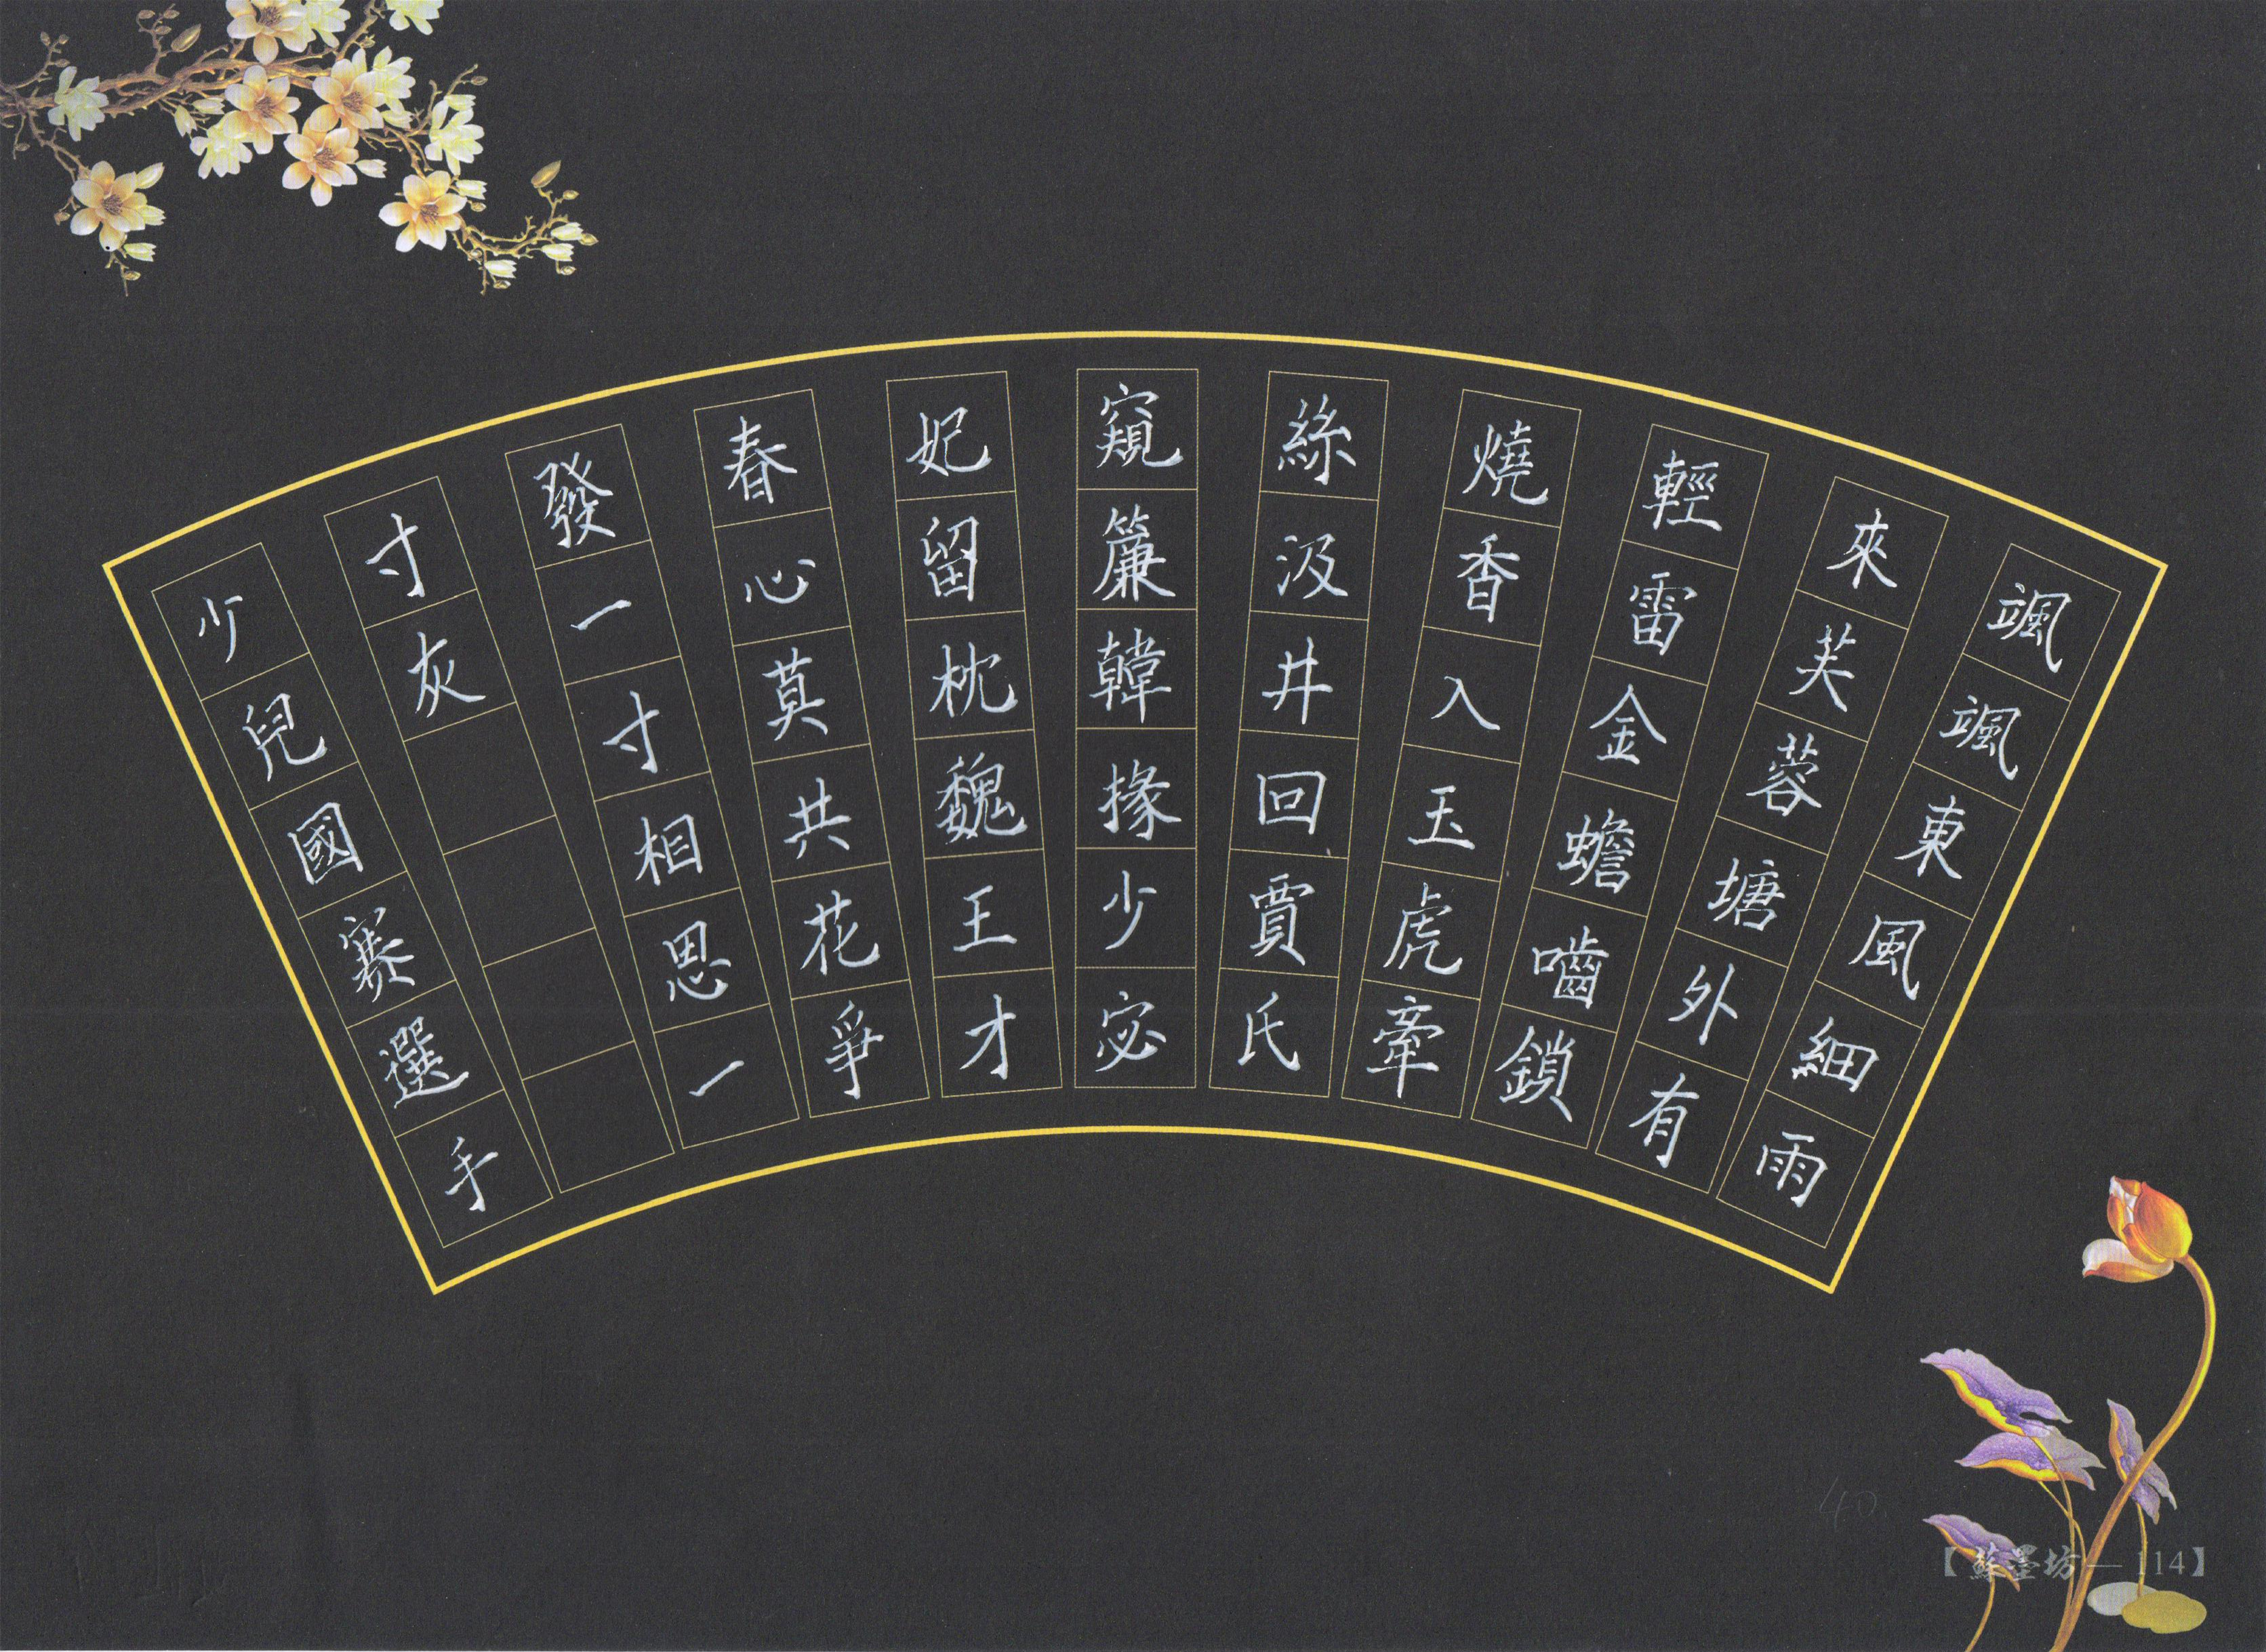 颯颯東風細雨
來芙蓉塘外有
輕雷金蟾嚙鎖
燒香入玉虎牽
絲汲井回賈氏
窺簾韓掾少宓
妃留枕魏王才
春心莫共花爭
發一寸相思一
寸灰
少兒國賽選手
40
【蘇墨坊—114】